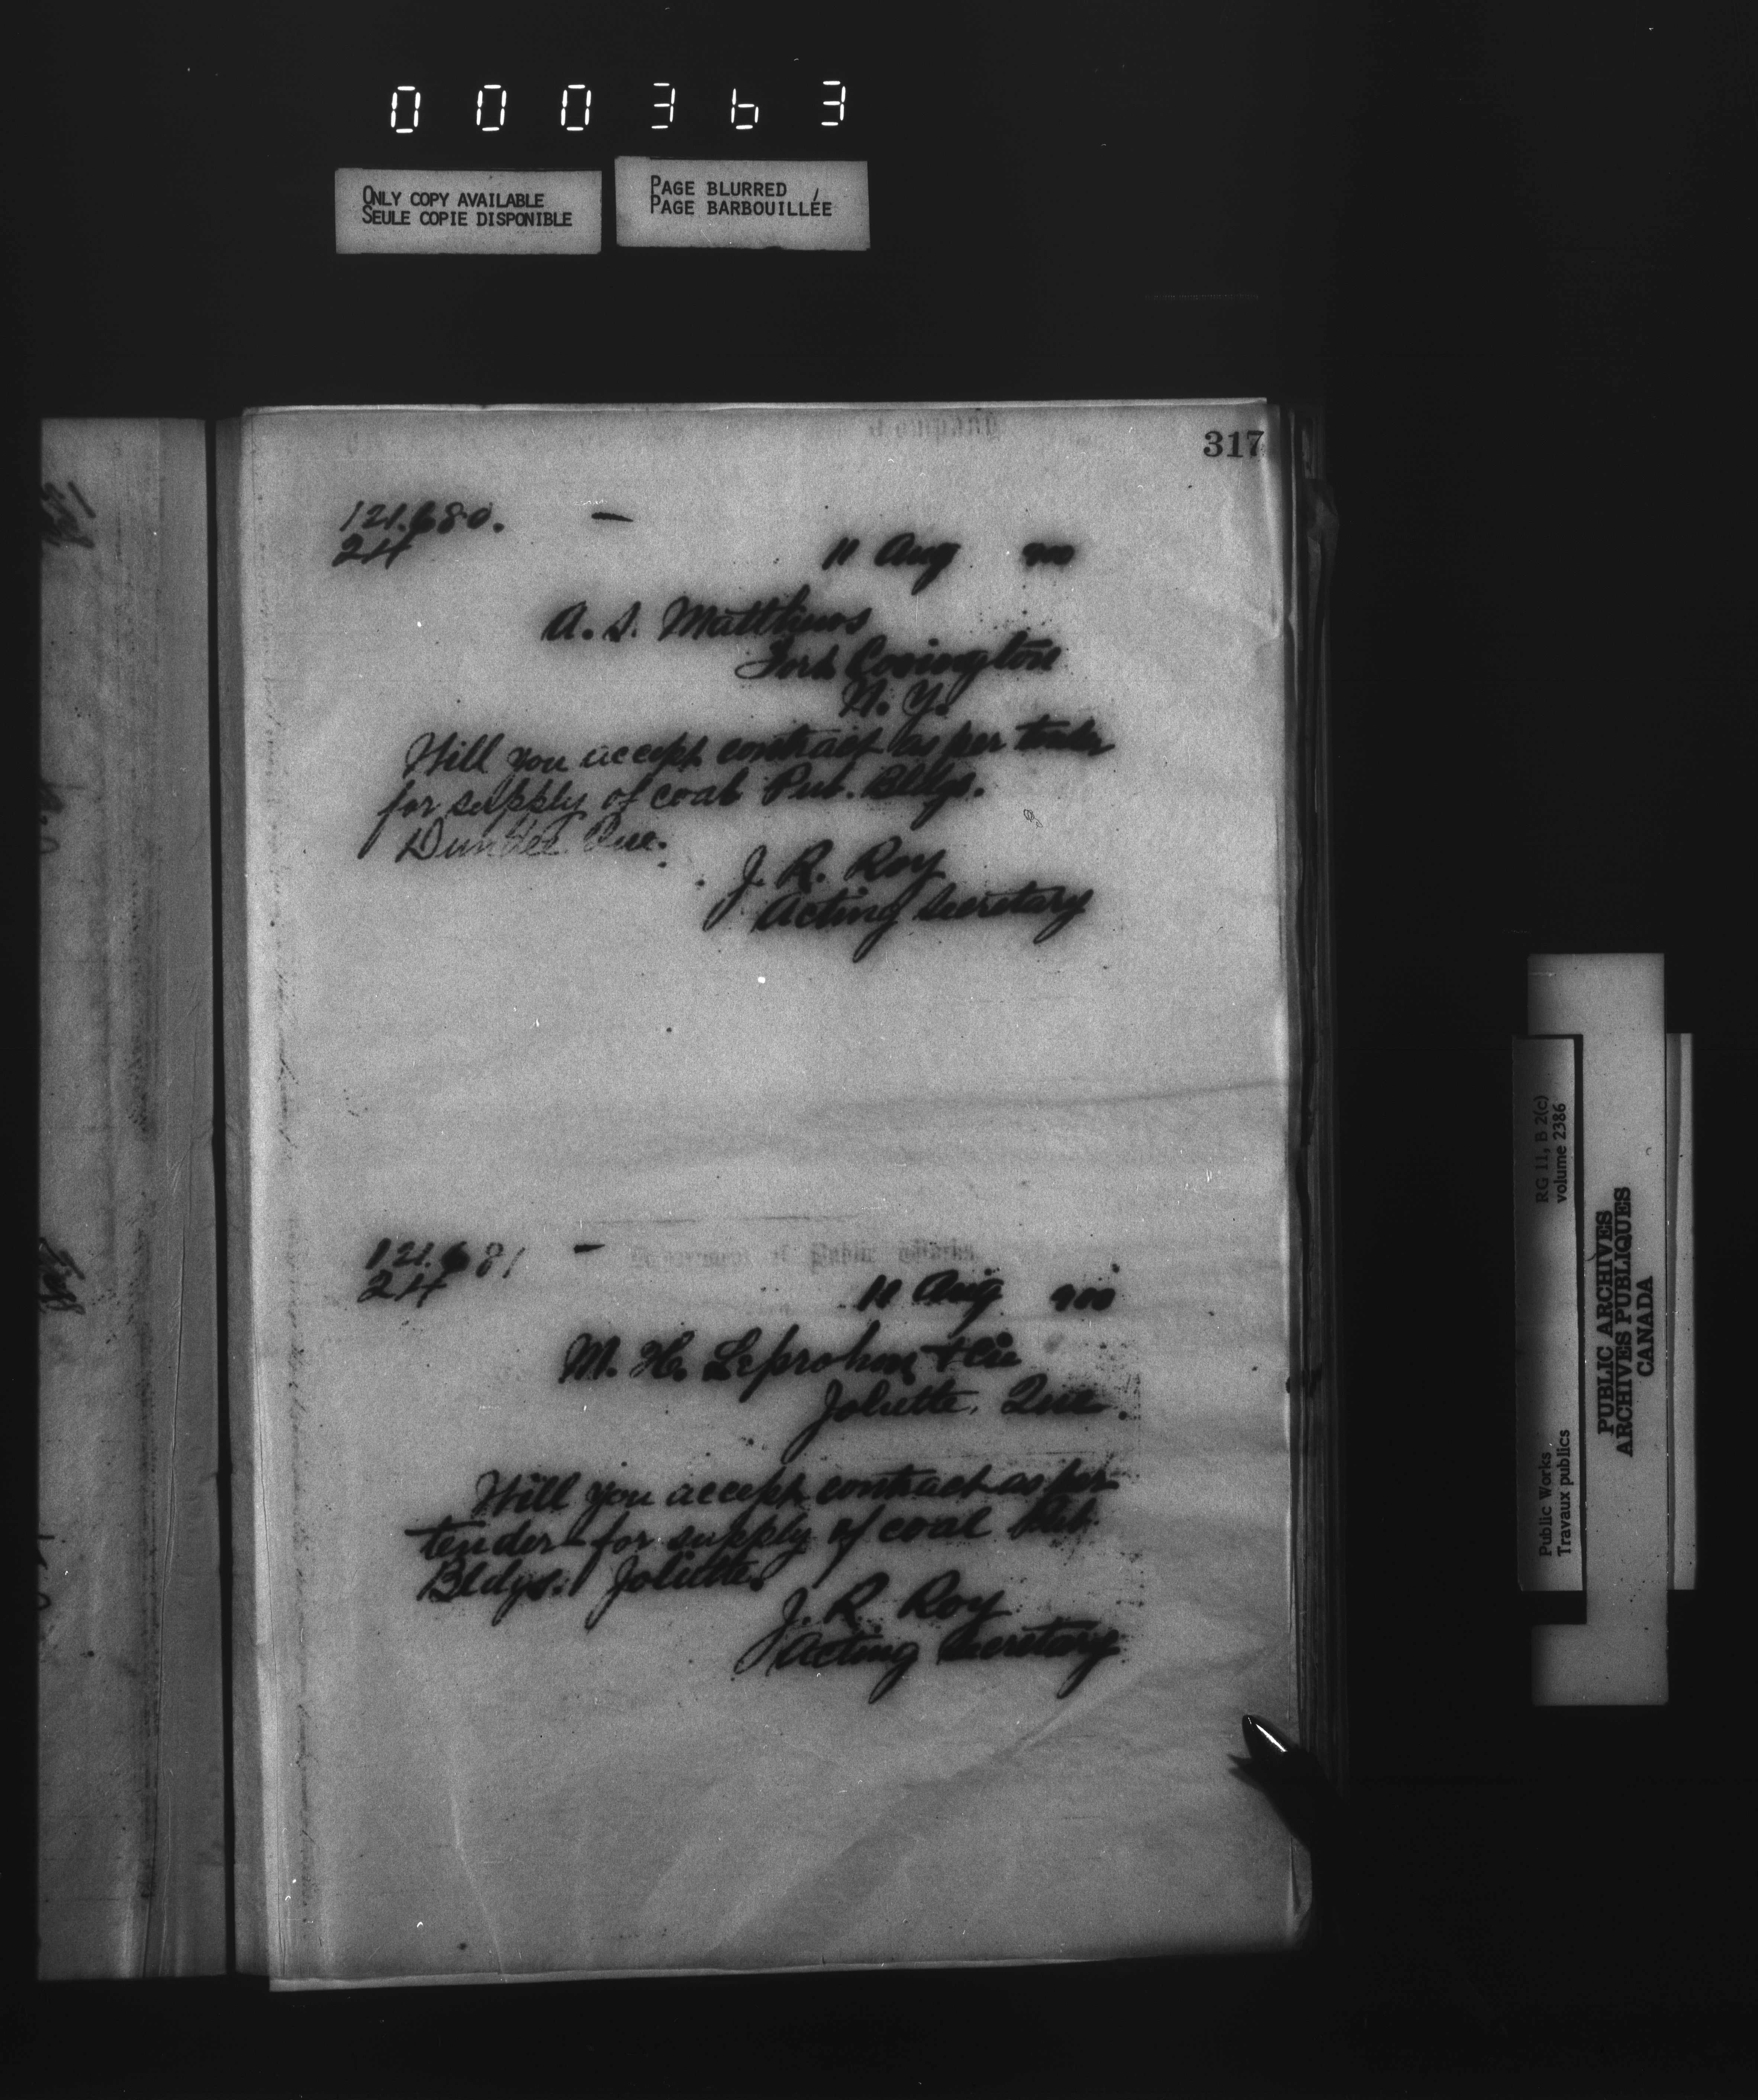 000363
ONLY COPY AVAILABLE
SEULE COPIE DISPONIBLE
PAGE BLURRED
PAGE BARBOUILLÉE
317
121.680. —
24
11 Aug 900
A. S. Matthews
Fort Covington
N. Y.
Will you accept contract as per tender
for supply of coal Pub. Bldgs.
Dundee Que.
J. R. Roy
Acting Secretary
121.681 —
24
Department of Public Works
11 Aug 900
M. H. Leprohon & Cie
Joliette, Que.
Will you accept contract as per
tender for supply of coal Pub
Bldgs. Joliette.
J. R. Roy
Acting Secretary
RG 11, B 2(c)
volume 2386
Public Works
Travaux publics
PUBLIC ARCHIVES
ARCHIVES PUBLIQUES
CANADA